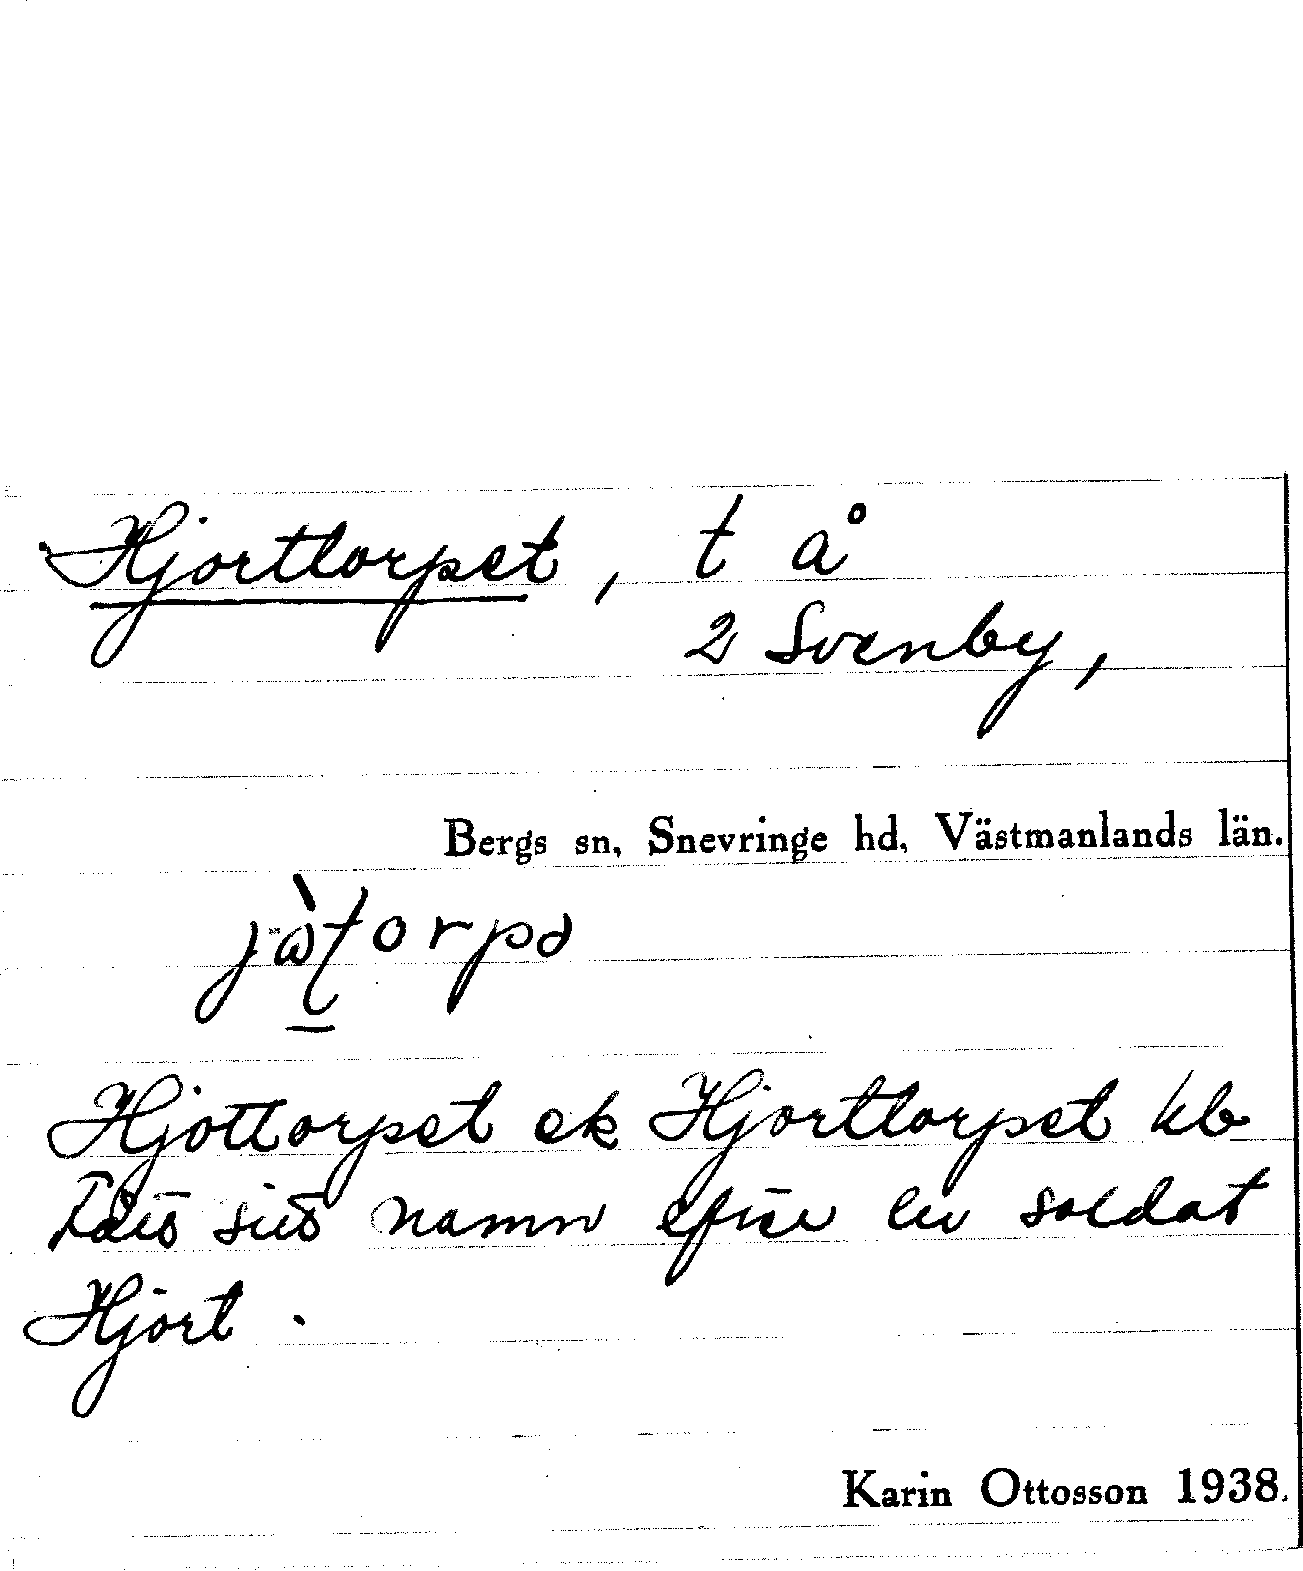 Hjorttorpet, t å
2 Svenby,
Bergs sn, Snevringe hd, Västmanlands län.
Hjottorpet ek Hjorttorpet kb
Fått sitt namn efter en soldat
Hjort.
Karin Ottosson 1938.